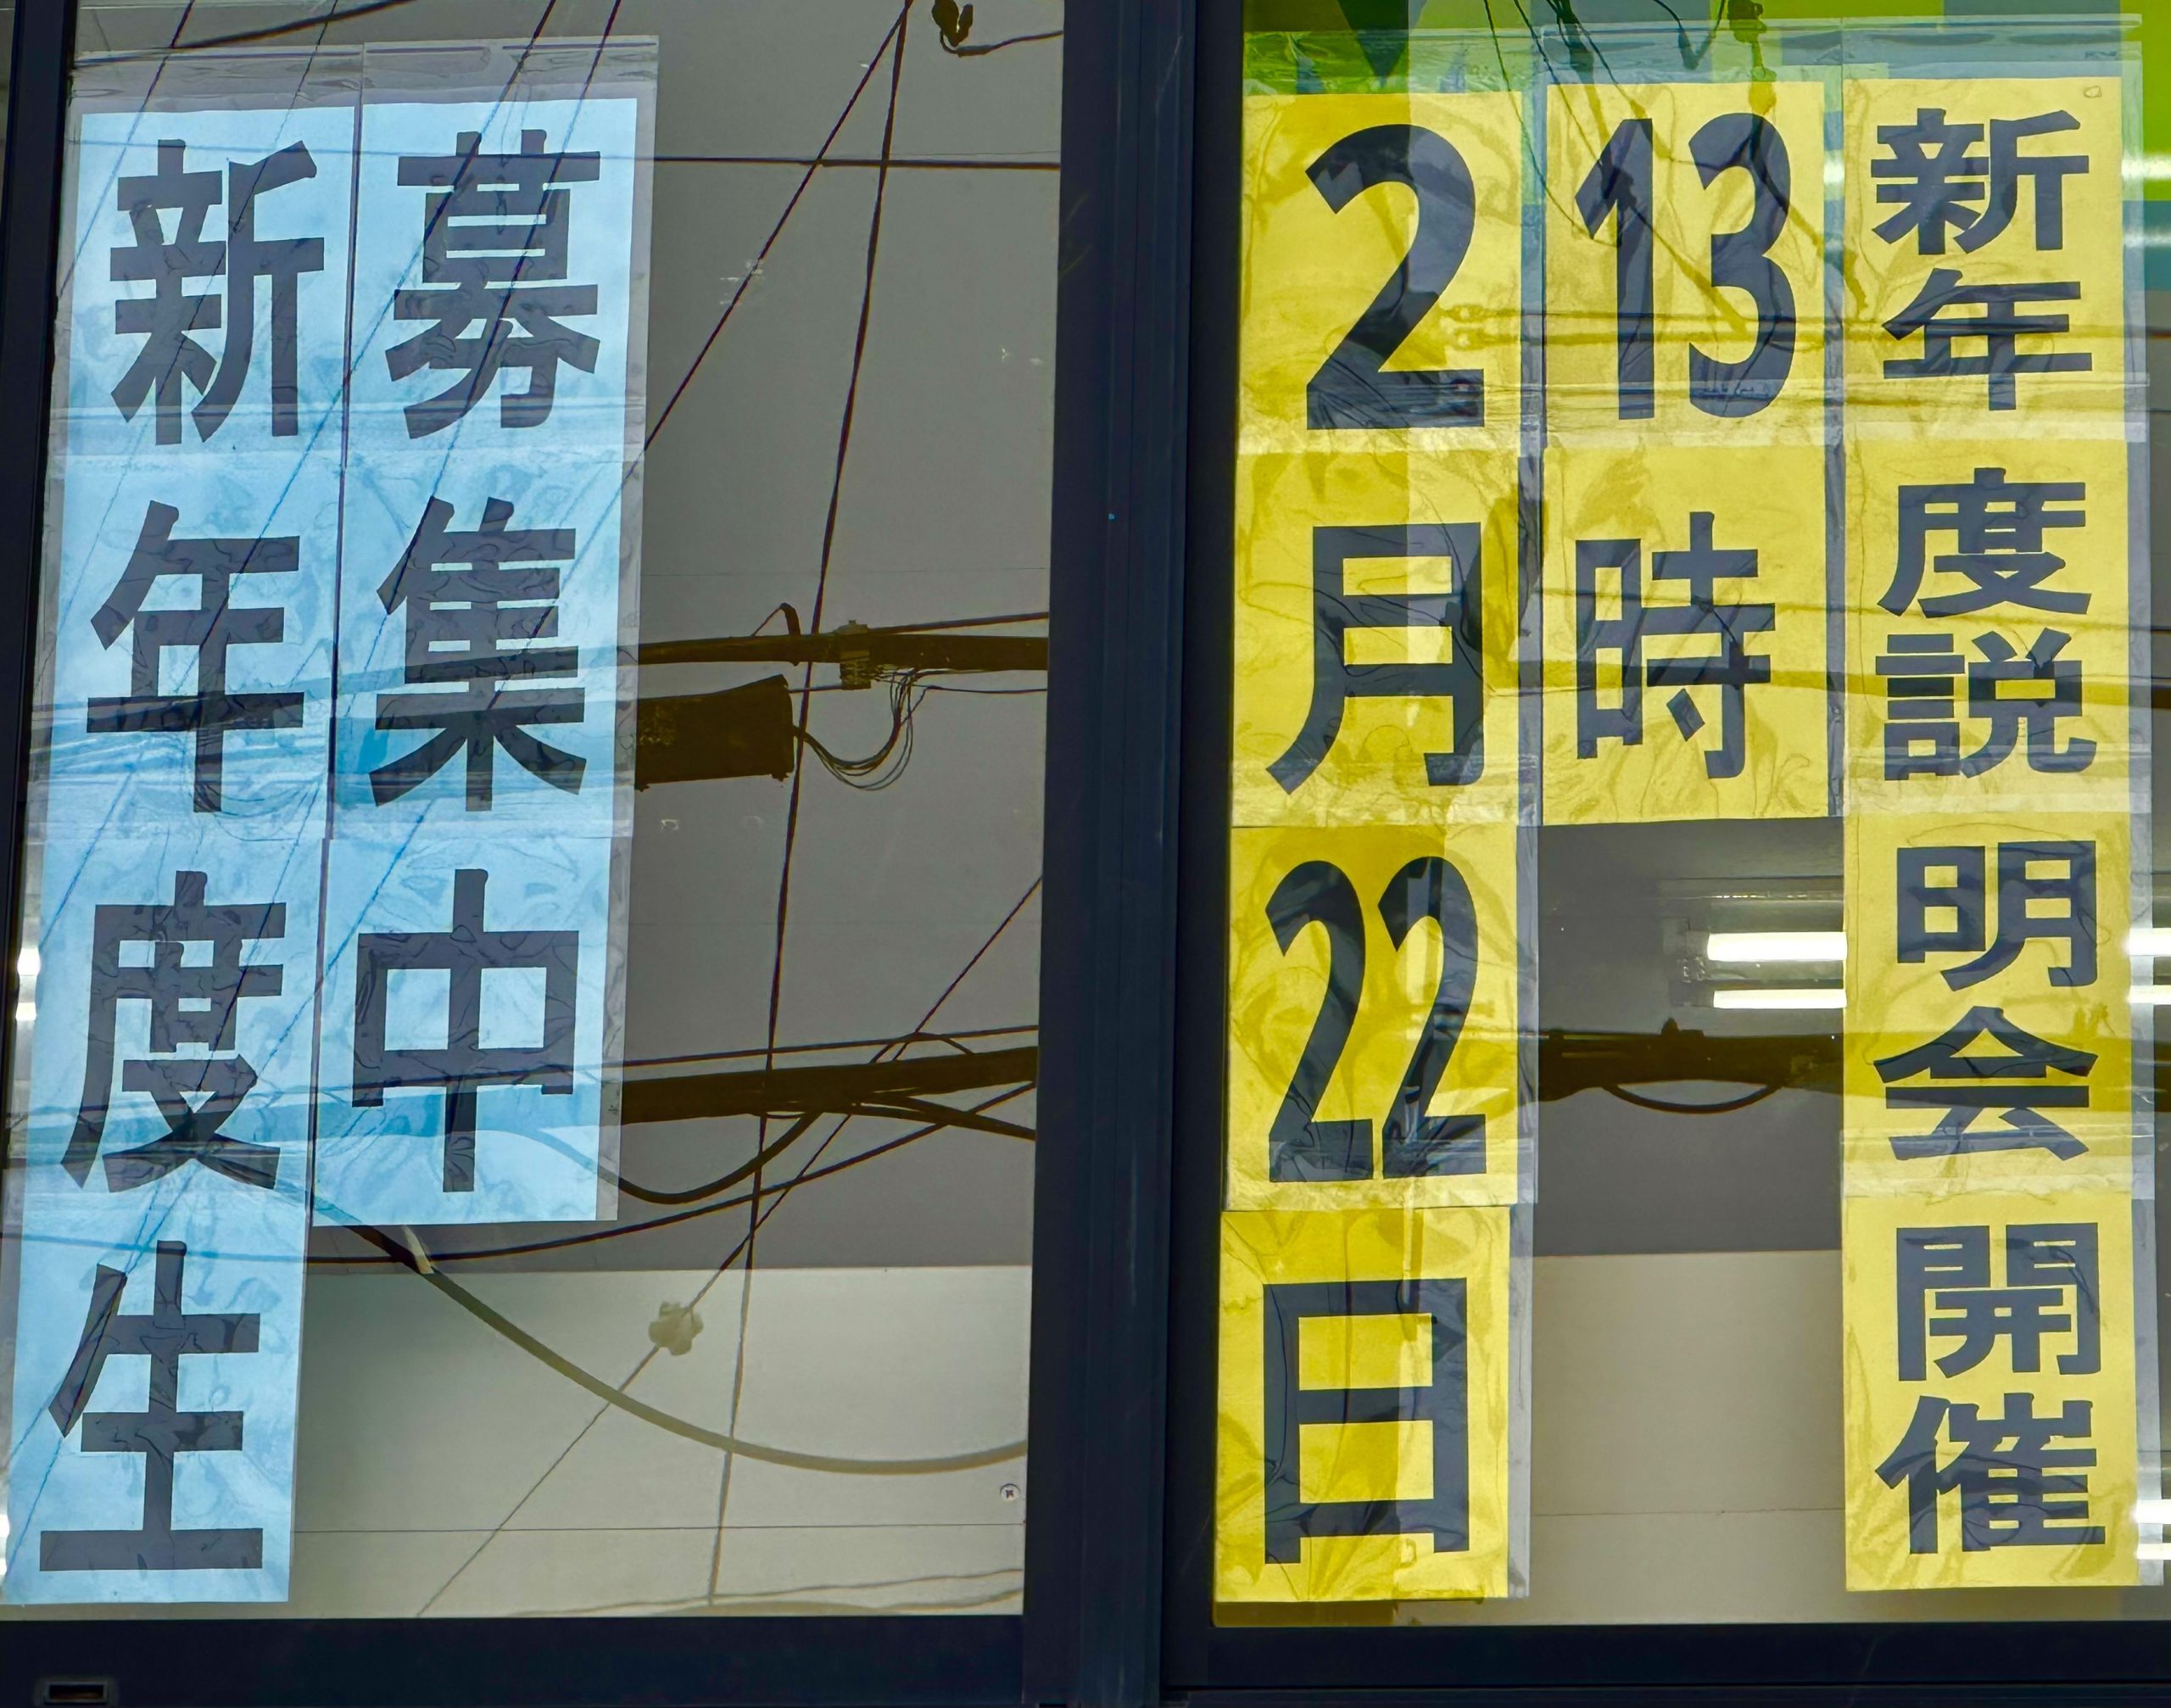 新年度生
募集中
2月22日
13時
新年度説明会開催